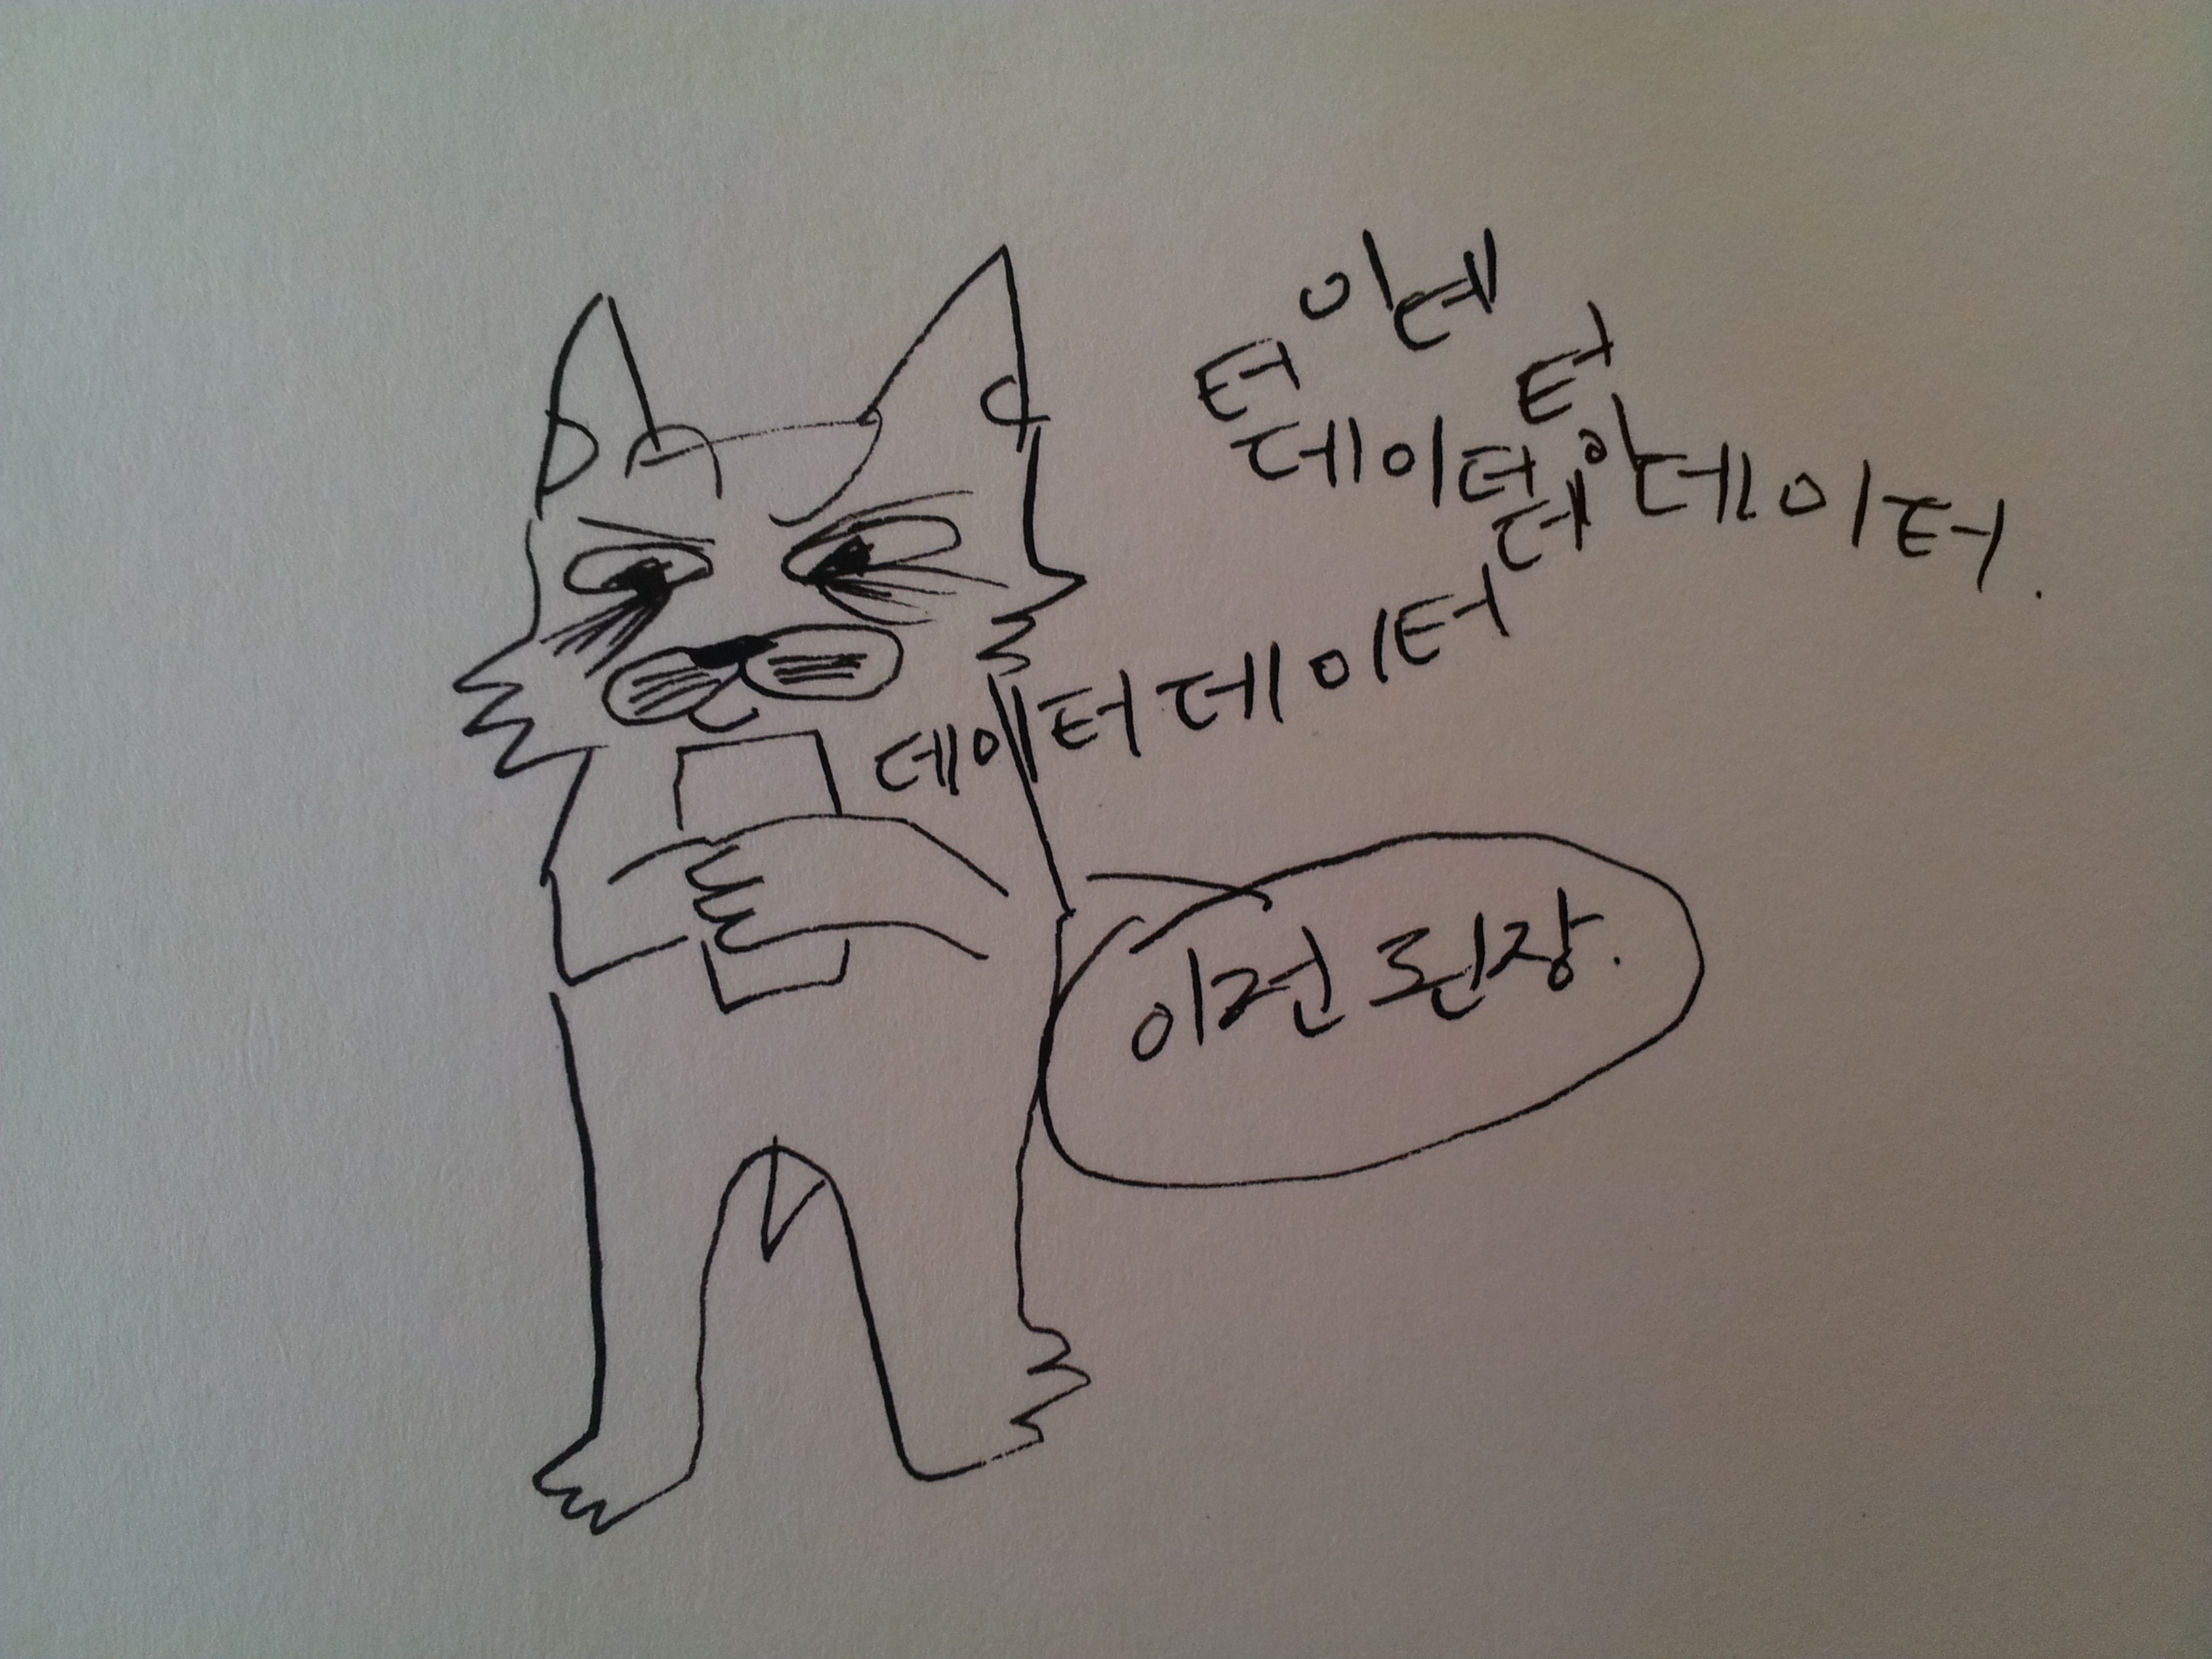 데이터데이터데이터데이터
데이터데이터
이런 된장.